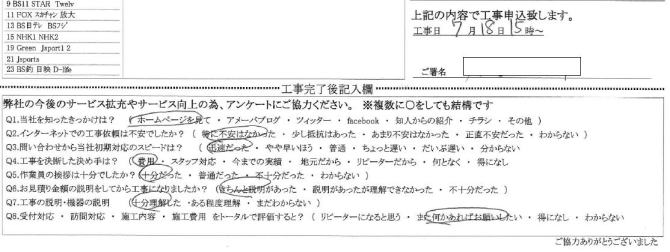 9 BS11 STAR Twelv
11 FOX スカチャン 放大
13 BS日テレ BSフジ
15 NHK1 NHK2
19 Green Jsport1 2
21 Jsports
23 BS釣 日映 D-life
上記の内容で工事申込致します。
工事日 7月18日15時~
ご署名
工事完了後記入欄
弊社の今後のサービス拡充やサービス向上の為、アンケートにご協力ください。 ※複数に○をしても結構です
Q1.当社を知ったきっかけは? ( ホームページを見て ・ アメーバブログ ・ ツィッター ・ facebook ・ 知人からの紹介 ・ チラシ ・ その他 )
Q2.インターネットでの工事依頼は不安でしたか? ( 特に不安はなかった ・ 少し抵抗はあった ・ あまり不安はなかった ・ 正直不安だった ・ わからない )
Q3.問い合わせから当社初期対応のスピードは? ( 迅速だった ・ やや早いほう ・ 普通 ・ ちょっと遅い ・ だいぶ遅い ・ 分からない )
Q4.工事を決断した決め手は? ( 費用 ・ スタッフ対応 ・ 今までの実績 ・ 地元だから ・ リピーターだから ・ 何となく ・ 得になし
Q5.作業員の挨拶は十分でしたか? ( 十分だった ・ 普通だった ・ 不十分だった ・ わからない )
Q6.お見積り金額の説明をしてから工事になりましたか? ( きちんと説明があった ・ 説明があったが理解できなかった ・ 不十分だった )
Q7.工事の説明・機器の説明 ( 十分理解した ・ ある程度理解 ・ まだわからない )
Q8.受付対応 ・ 訪問対応 ・ 施工内容 ・ 施工費用 をトータルで評価すると? ( リピーターになると思う ・ また何かあればお願いしたい ・ 得になし ・ わからない
ご協力ありがとうございました